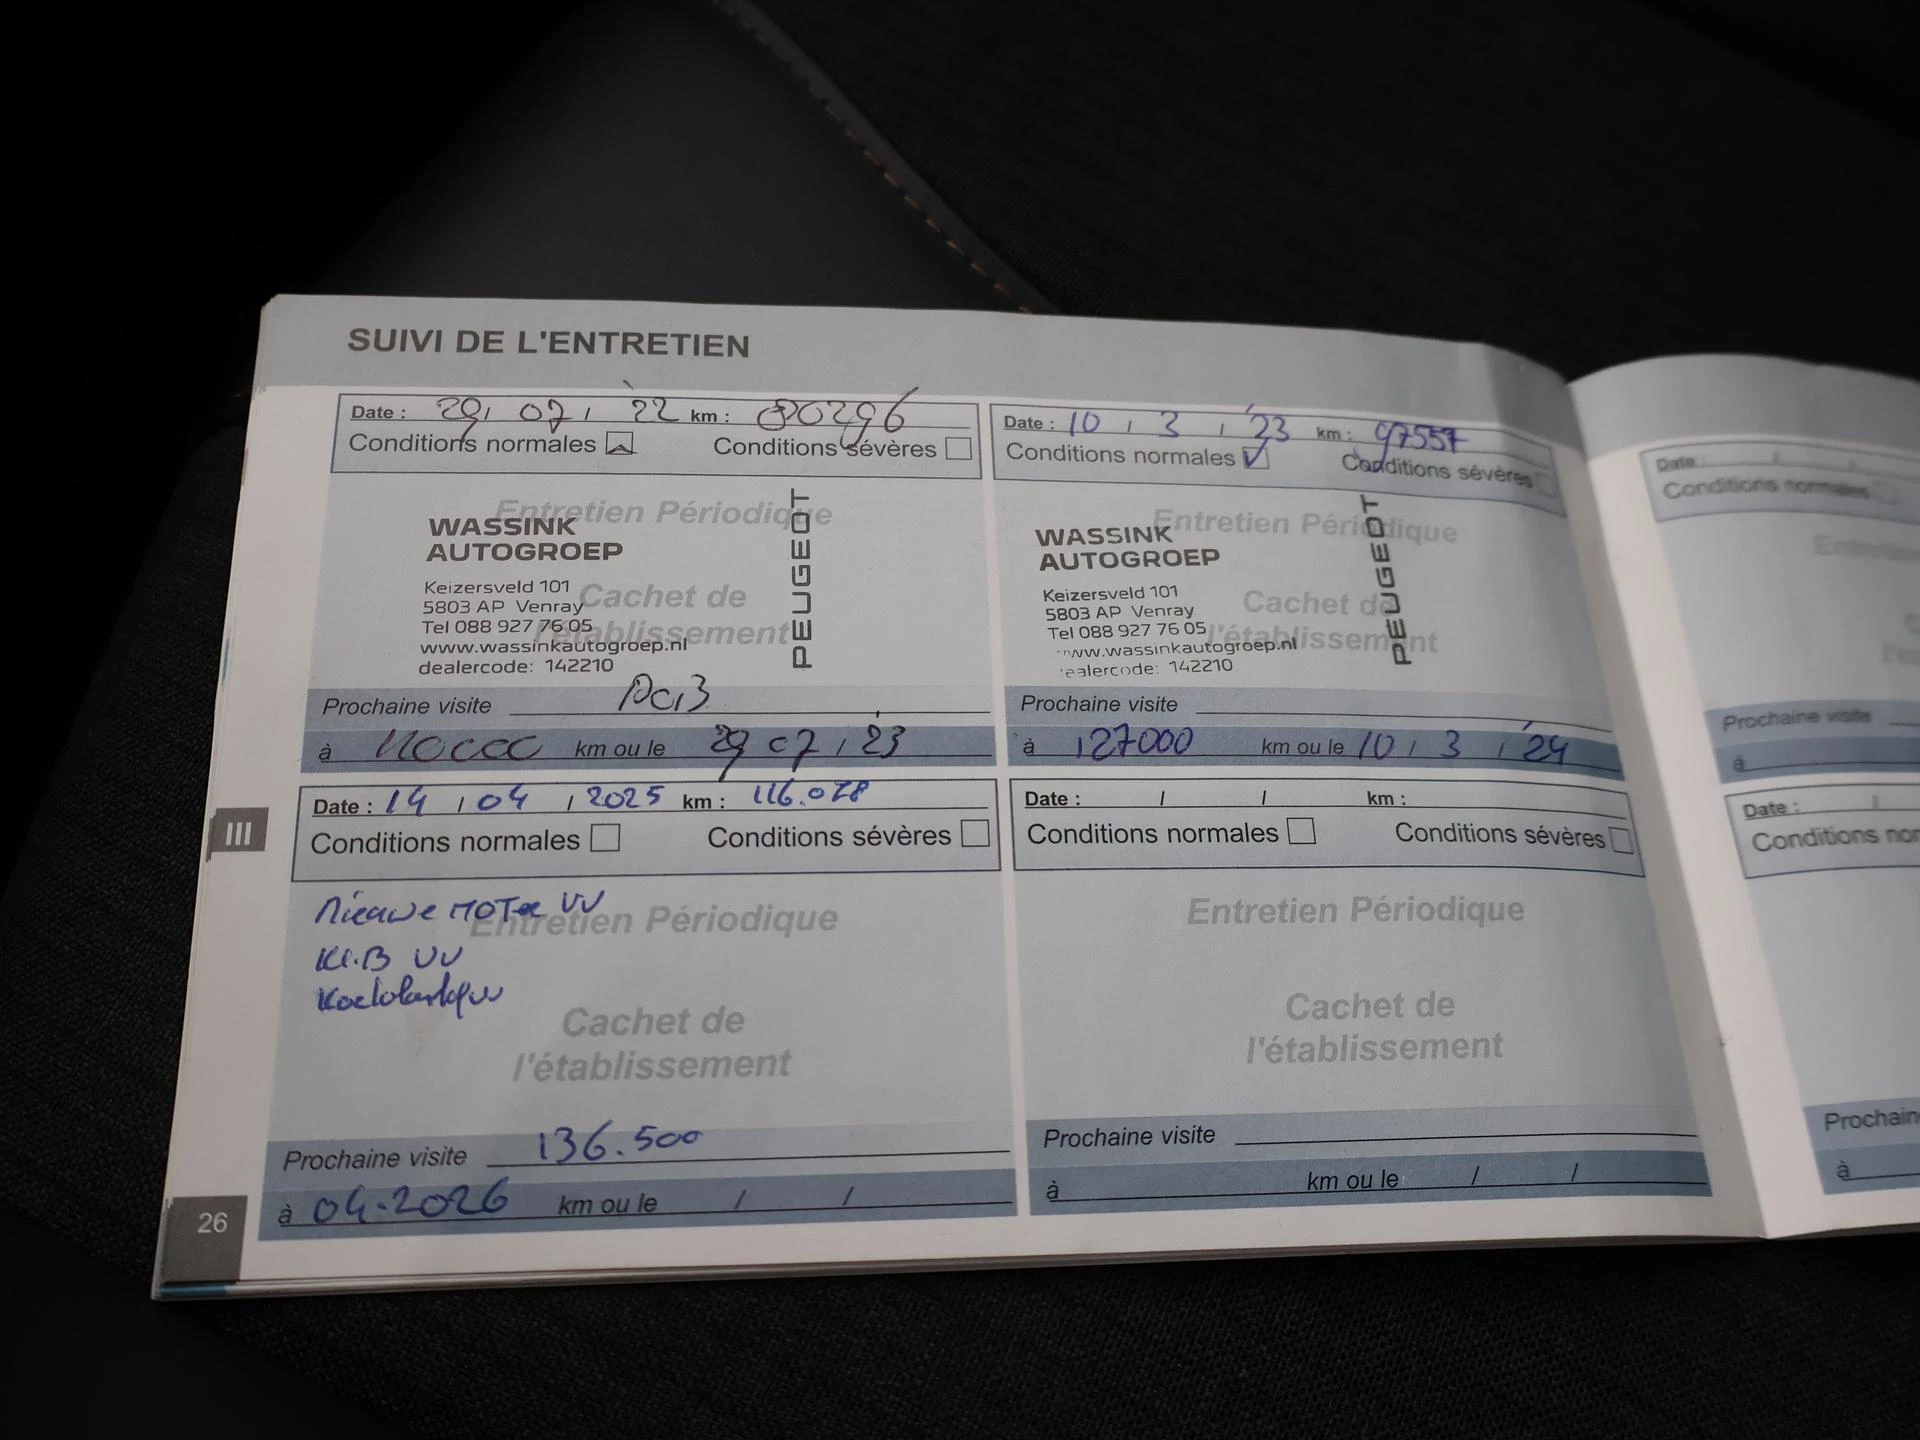 SUIVI DE L'ENTRETIEN
Date : 29 / 07 / 22 km : 80296
Conditions normales Conditions sévères
Entretien Périodique
WASSINK
AUTOGROEP
PEUGEOT
Keizersveld 101
5803 AP Venray
Tel 088 927 76 05
www.wassinkautogroep.nl
dealercode: 142210
Cachet de
l'établissement
Prochaine visite
à 110000 km ou le 29 07 / 23
Date : 10 / 3 / 23 km : 97557
Conditions normales Conditions sévères
Entretien Périodique
WASSINK
AUTOGROEP
PEUGEOT
Keizersveld 101
5803 AP Venray
Tel 088 927 76 05
www.wassinkautogroep.nl
ealercode: 142210
Cachet de
l'établissement
Prochaine visite
à 127000 km ou le 10 / 3 / 24
III
Date : 14 / 04 / 2025 km : 116.078
Conditions normales Conditions sévères
Nieuwe MOTOR VV
Entretien Périodique
VV
Cachet de
l'établissement
Prochaine visite 136.500
à 04-2026 km ou le / /
Date : / / km :
Conditions normales Conditions sévères
Entretien Périodique
Cachet de
l'établissement
Prochaine visite
à km ou le / /
26
Date : /
Conditions normales
Prochaine visite
à
Date : /
Conditions nor
Prochain
à